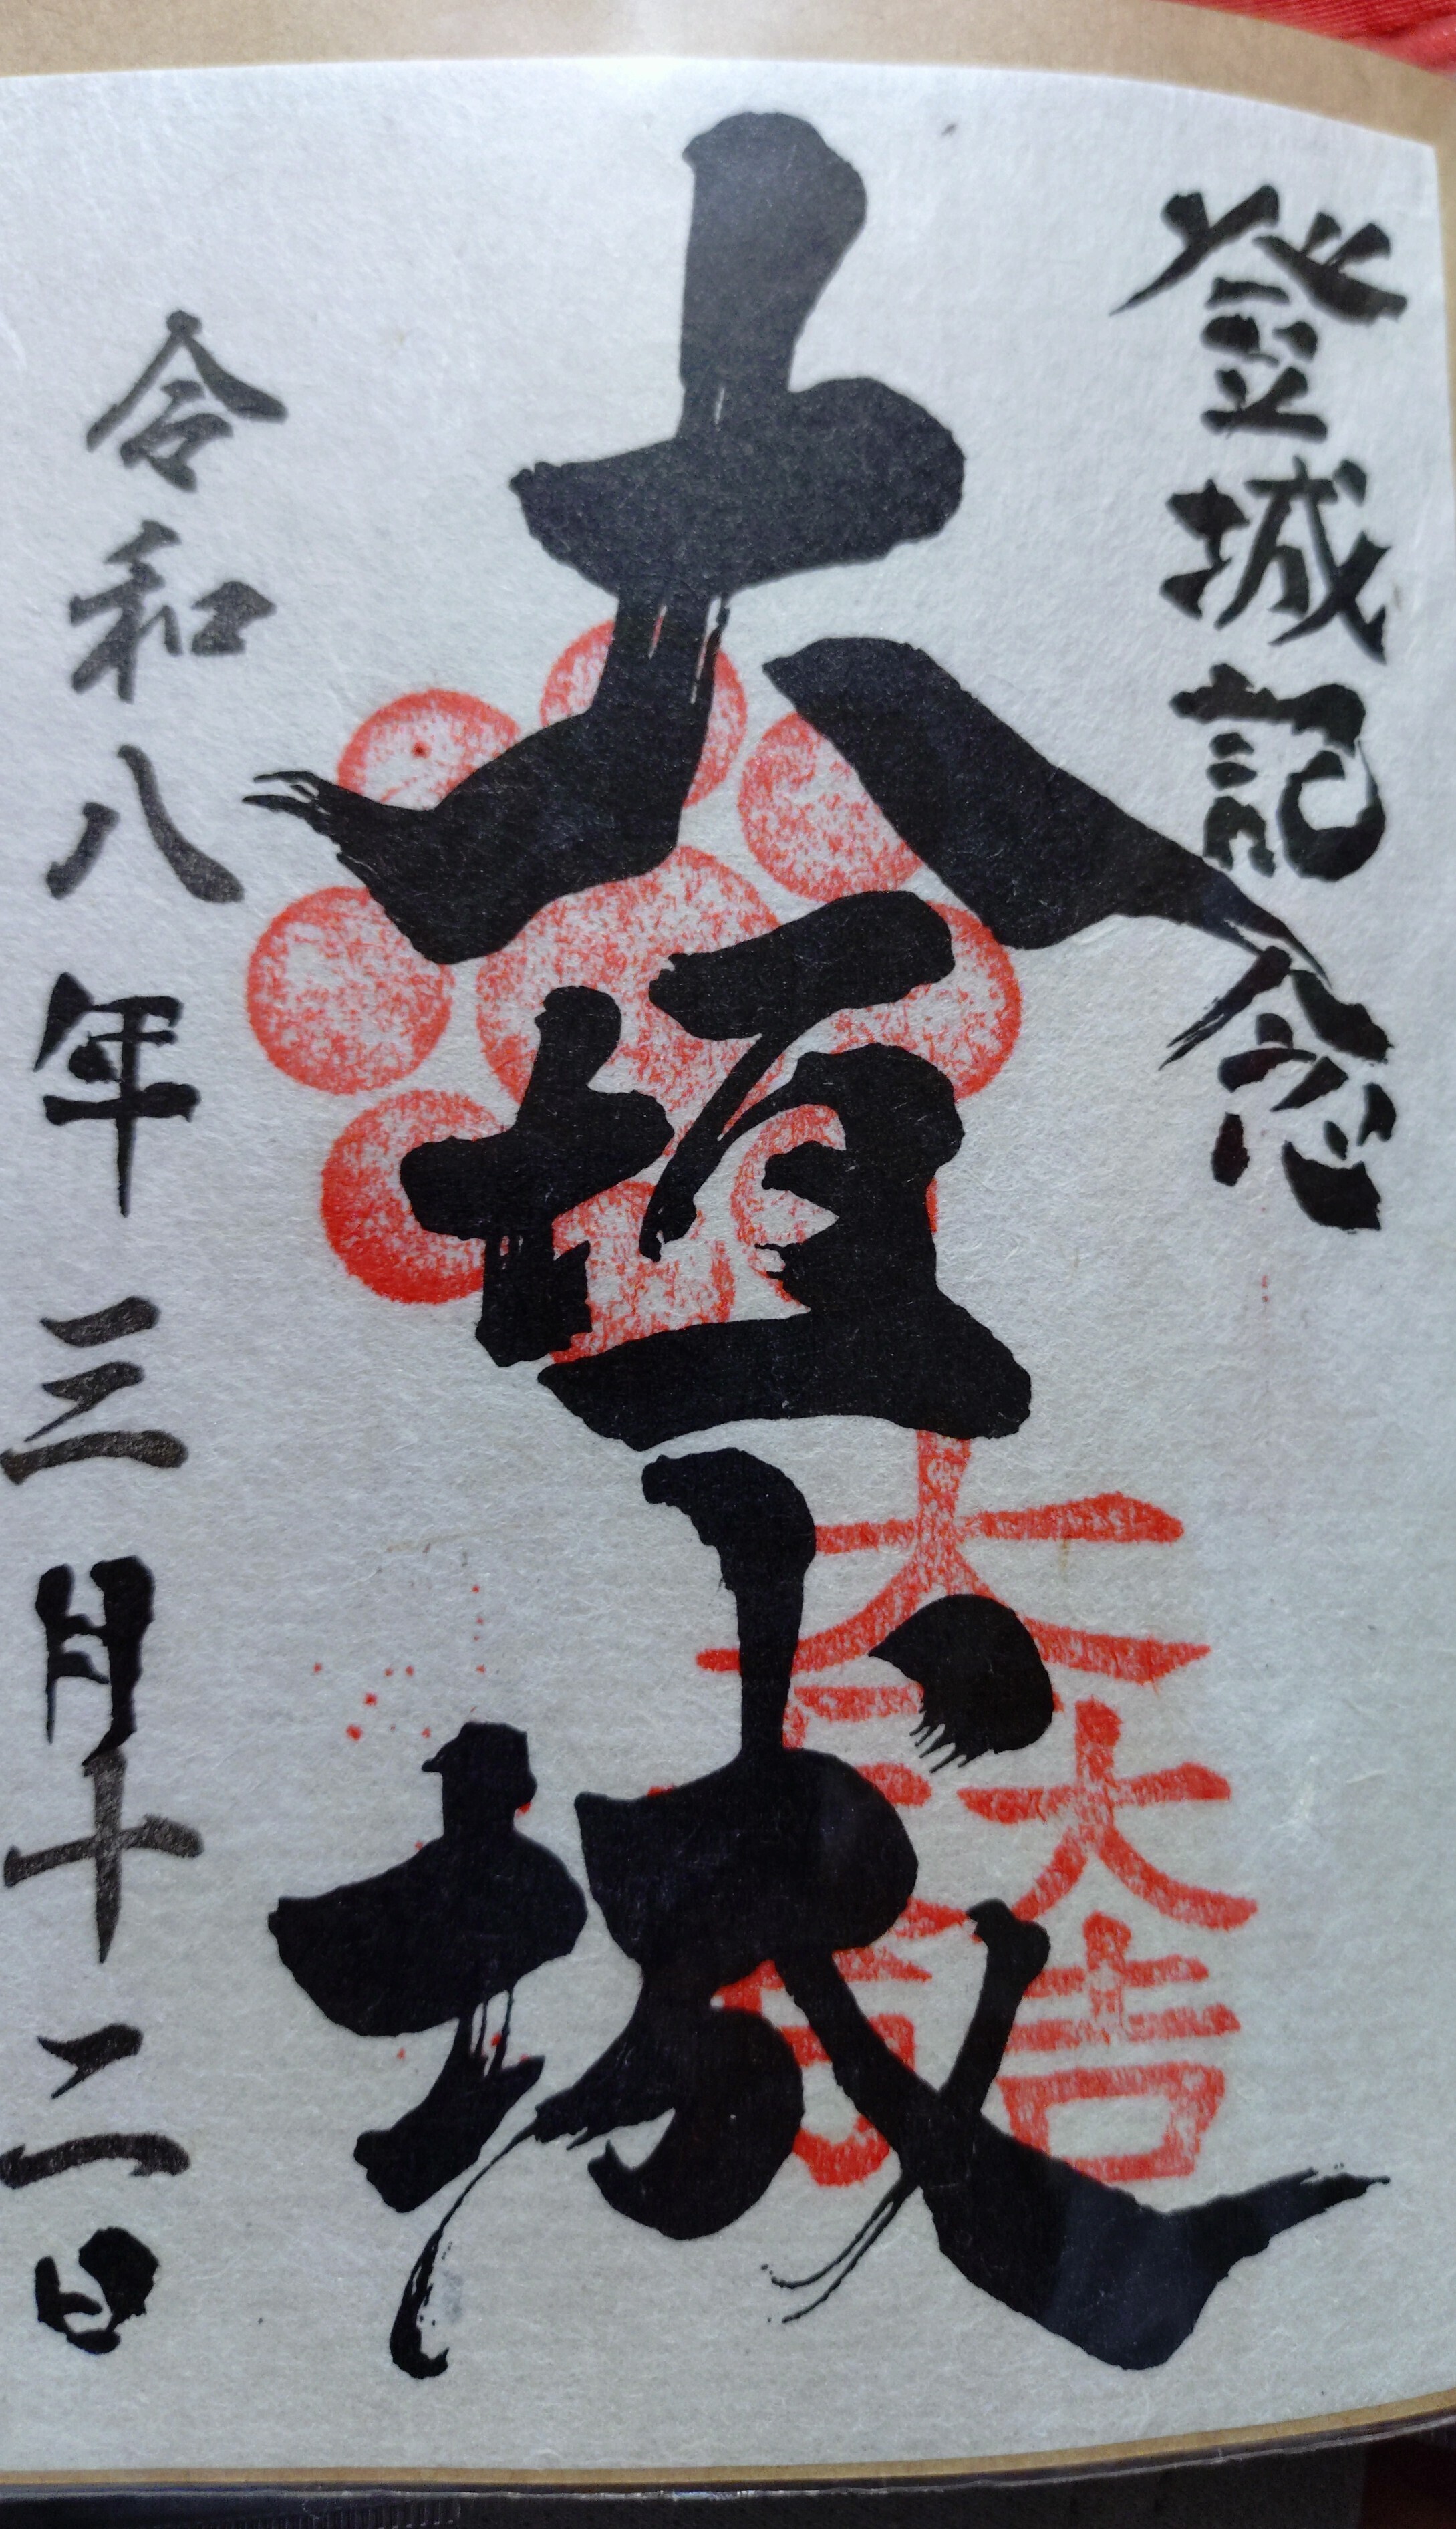 登城記念
大垣城
令和八年三月十二日
大
大吉